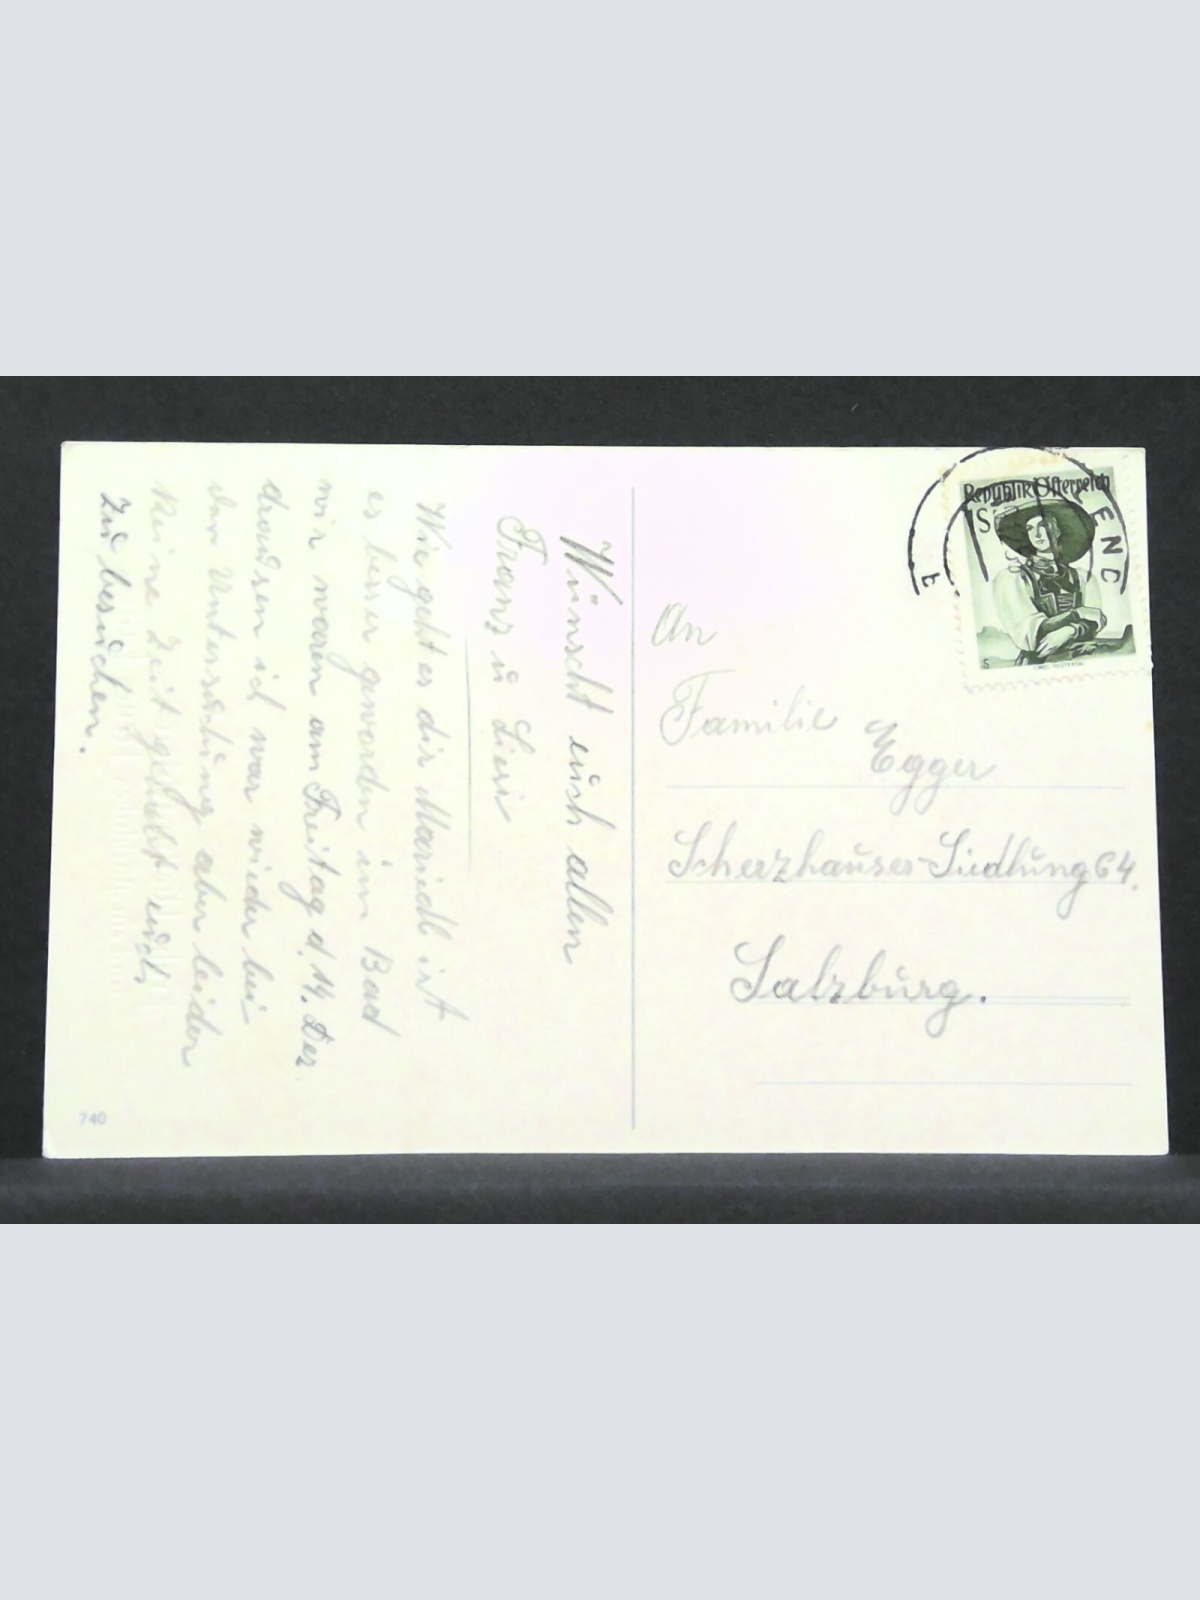 Wünscht euch allen
Franz u Liesi
Wie geht es dir Mariedl ist
es besser geworden im Bad
wir waren am Freitag d. 14. Dez
draußen ich war wieder bei
der Untersuchung aber leider
keine Zeit gehabt euch
zu besuchen.
740
Republik Österreich
1S
S
ENC
t
An
Familie
Egger
Scherzhauser-Siedlung 64.
Salzburg.